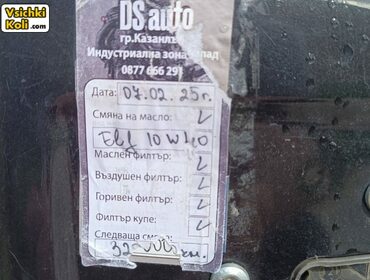 Vsichki
Koli.com
DS auto
гр.Казанлък
Индустриална зона
0877 666 291
Дата: 07.02.25г.
Смяна на масло: ✓
Elf 10W40
Маслен филтър: ✓
Въздушен филтър: ✓
Горивен филтър: ✓
Филтър купе: ✓
Следваща смяна:
км.